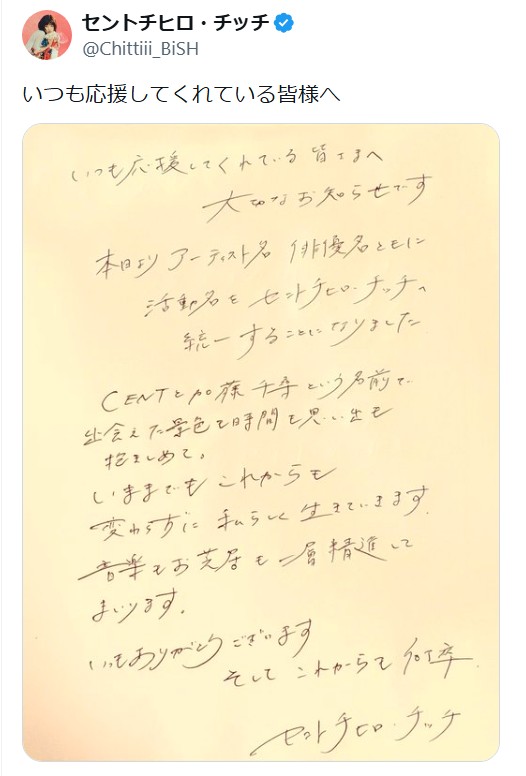 セントチヒロ・チッチ
@Chittiii_BiSH
いつも応援してくれている皆様へ
いつも応援してくれている皆さまへ
大切なお知らせです
本日より アーティスト名 俳優名ともに
活動名を セントチヒロ・チッチへ
統一することになりました
CENTと加藤千尋という名前で
出会えた景色も時間も思い出も
抱きしめて。
いままでも これからも
変わらずに 私らしく 生きていきます。
音楽もお芝居も 一層精進して
まいります。
いつもありがとうございます
そして これからも 何卒
セントチヒロ・チッチ